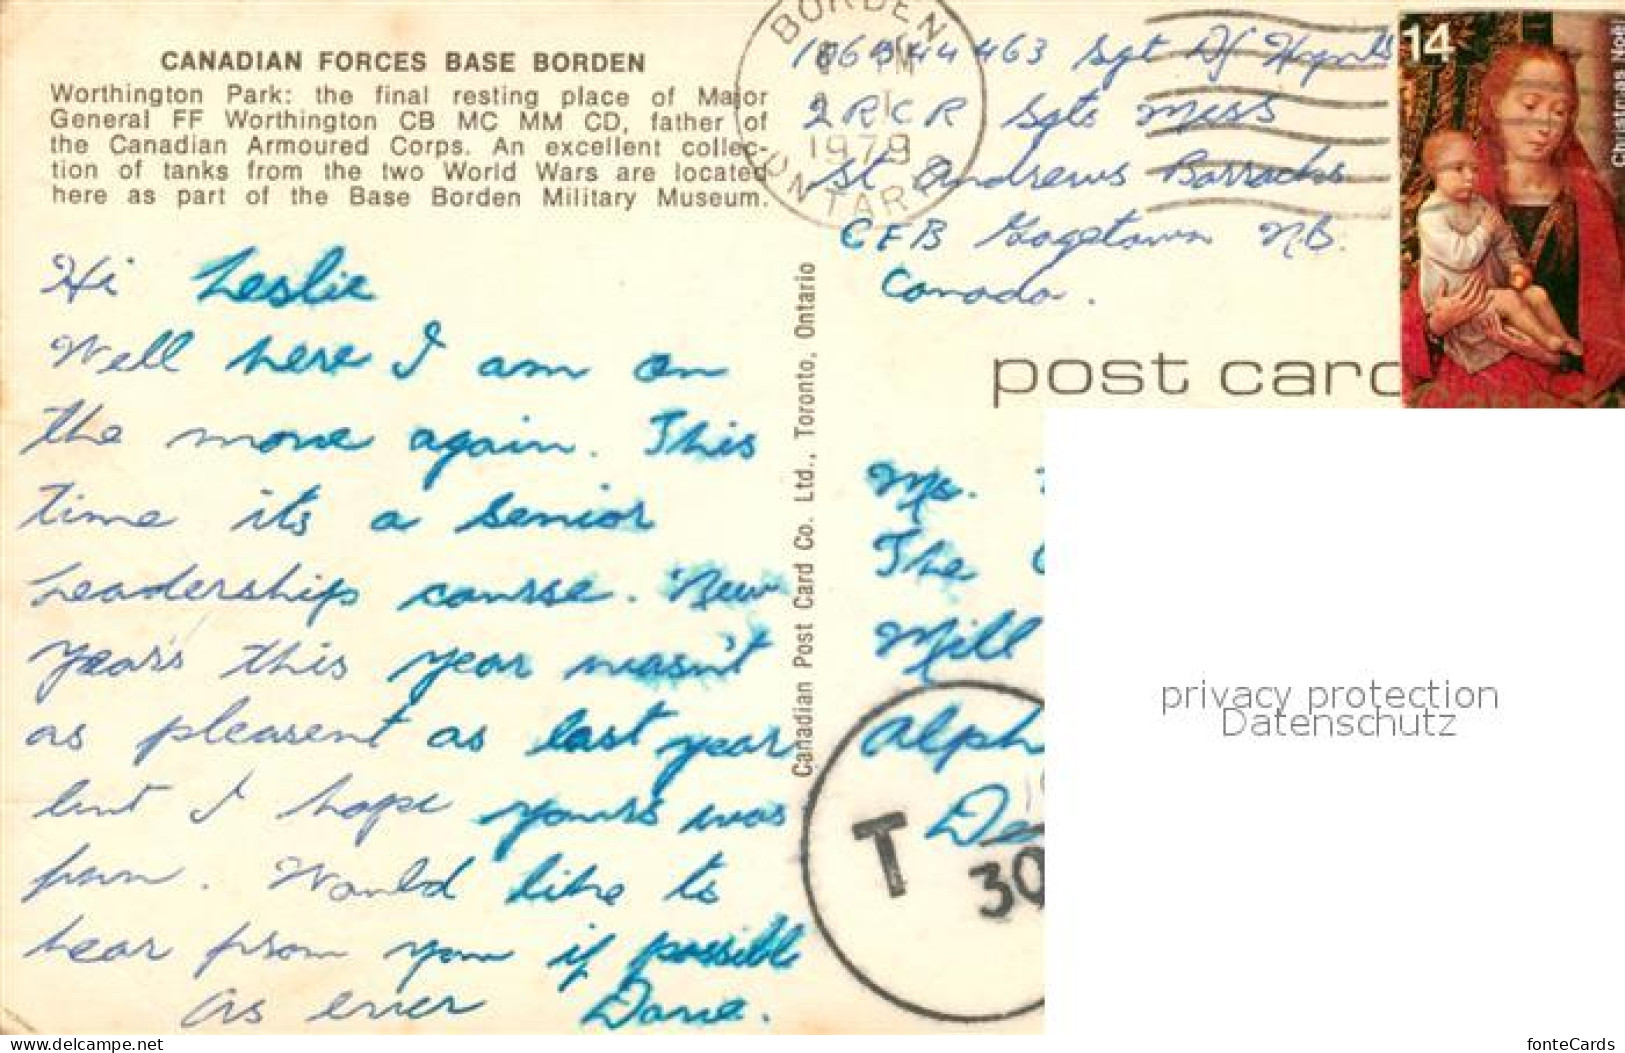 CANADIAN FORCES BASE BORDEN
Worthington Park: the final resting place of Major
General FF Worthington CB MC MM CD, father of
the Canadian Armoured Corps. An excellent collec-
tion of tanks from the two World Wars are located
here as part of the Base Borden Military Museum.
Hi Leslie
Well here I am on
the move again. This
time its a senior
Leadership course. New
Years this year wasn't
as pleasent as last year
but I hope yours was
fun. Would like to
hear from you if possible
as ever Dave.
Canadian Post Card Co. Ltd., Toronto, Ontario
BORDEN
PM
1979
ONTARIO
463 Sgt DJ
2 RCR Sgts Mess
St Andrews Barracks
CFB Gagetown N.B.
Canada.
14
Christmas Noël
post card
Ms.
The
Mill
Alph
De
T
30
privacy protection
Datenschutz
www.delcampe.net
fonteCards